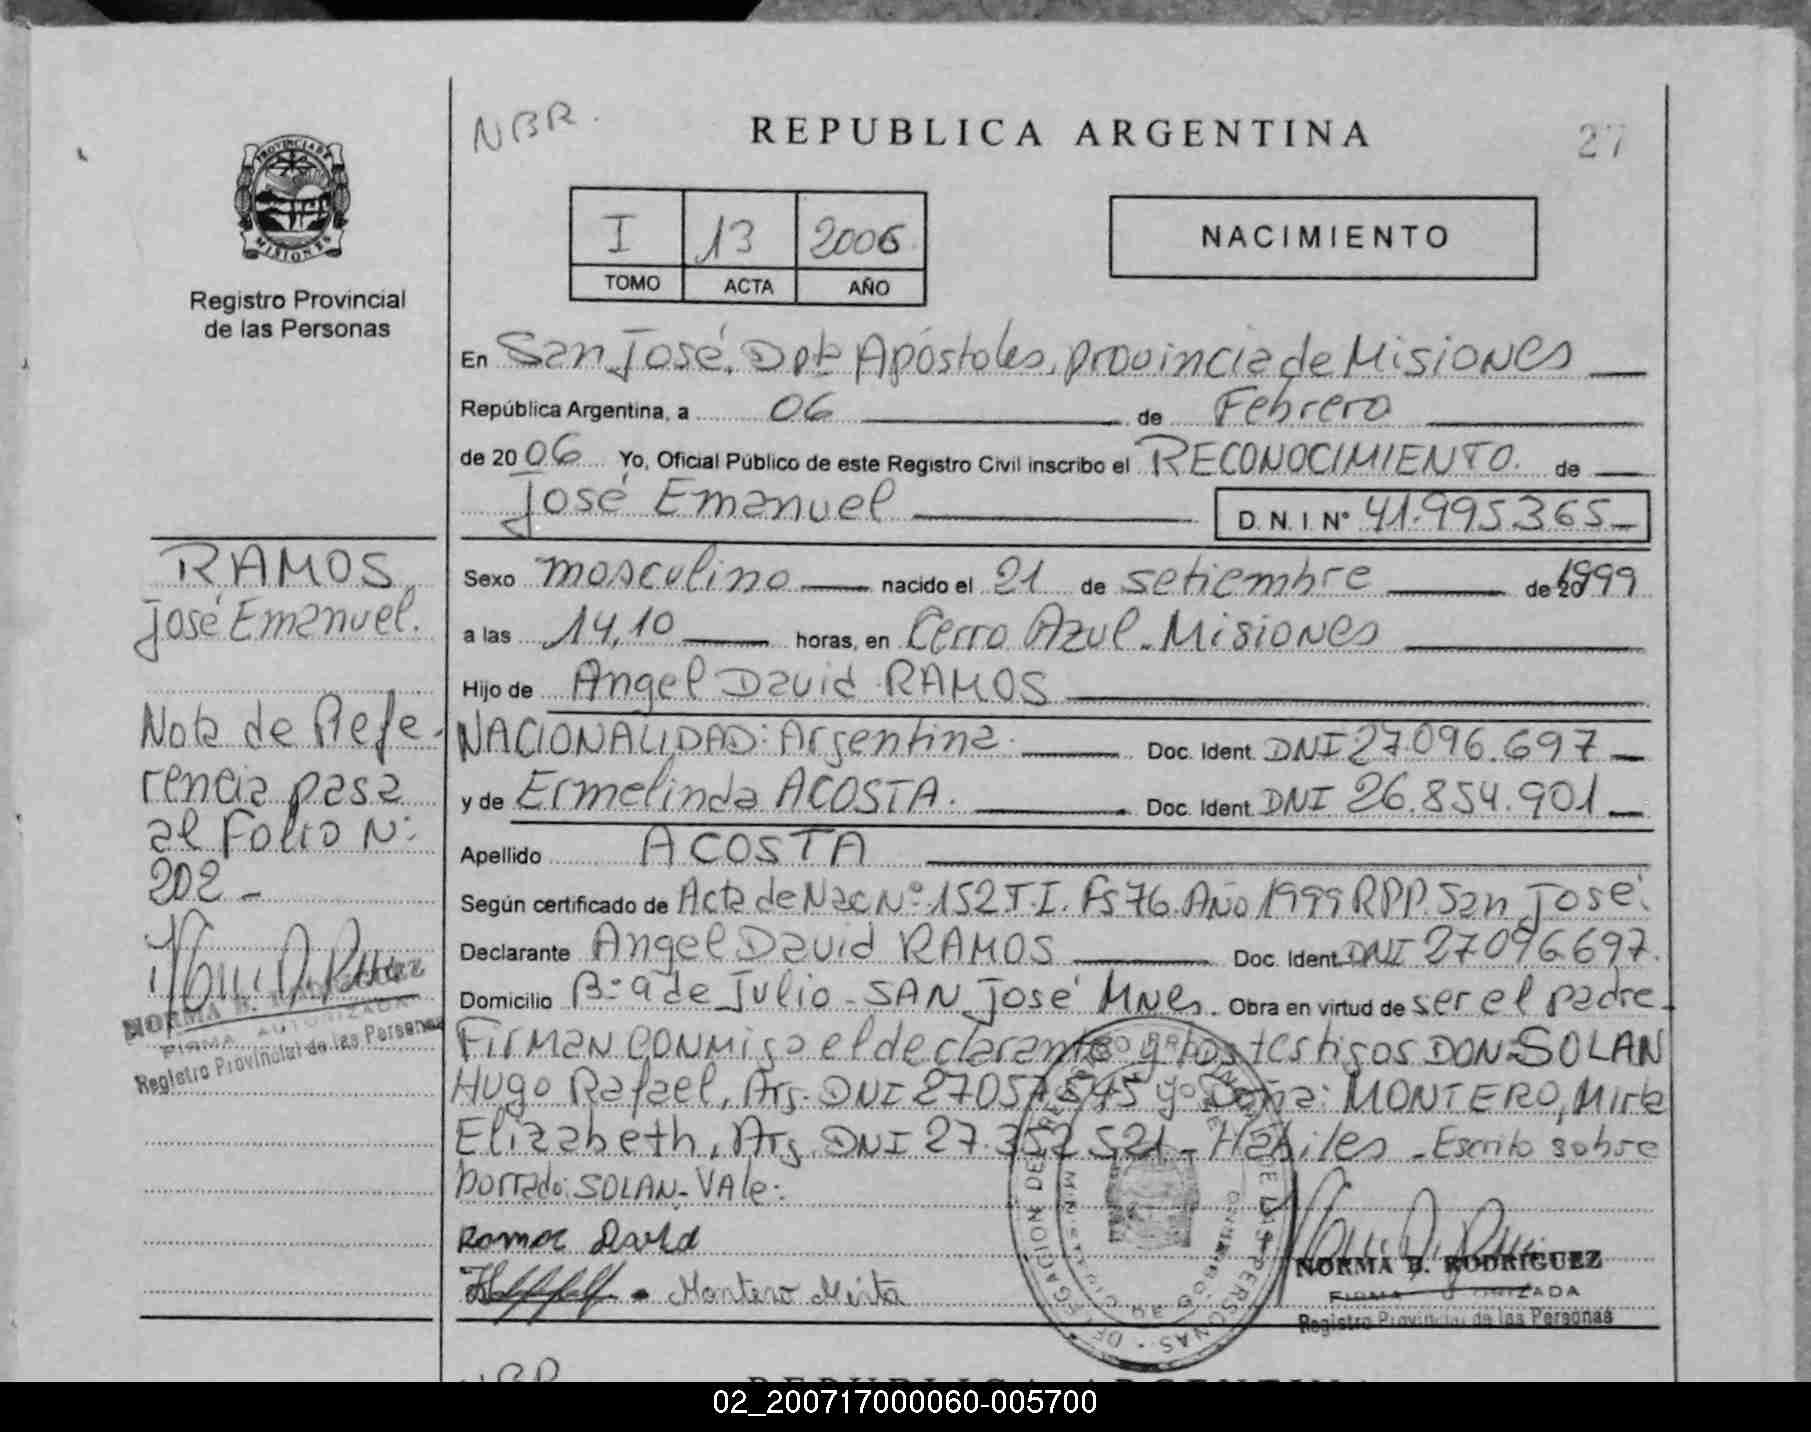 NBR.
REPUBLICA ARGENTINA
27
PROVINCIA DE MISIONES
Registro Provincial
de las Personas
I 13 2006
TOMO ACTA AÑO
NACIMIENTO
En San José, Dpto Apóstoles, provincia de Misiones
República Argentina, a 06 de Febrero
de 2006 Yo, Oficial Público de este Registro Civil inscribo el RECONOCIMIENTO. de
José Emanuel D.N.I. Nº 41.995.365
RAMOS
José Emanuel.
Nota de Refe-
rencia pasa
al Folio Nº
202-
NORMA B. RODRÍGUEZ
FIRMA AUTORIZADA
Registro Provincial de las Personas
Sexo masculino nacido el 21 de setiembre de 1999
a las 14,10 horas, en Cerro Azul - Misiones
Hijo de Angel David RAMOS
NACIONALIDAD: Argentina. Doc. Ident. DNI 27.096.697
y de Ermelinda ACOSTA. Doc. Ident. DNI 26.854.901
Apellido ACOSTA
Según certificado de Acta de Nac Nº 152 T.I. Fs 76 Año 1999 RPP. San José.
Declarante Angel David RAMOS Doc. Ident. DNI 27096.697.
Domicilio Bº 9 de Julio - SAN José Mnes. Obra en virtud de ser el padre-
Firman conmigo el declarante y los testigos DON: SOLAN
Hugo Rafael, Arg. DNI 27057545 y Doña: MONTERO, Mirta
Elizabeth, Arg. DNI 27.352.521 - Hábiles - Escrito sobre
borrado: SOLAN - Vale:
Ramos David
Montero Mirta
NORMA B. RODRÍGUEZ
FIRMA AUTORIZADA
Registro Provincial de las Personas
NBR
REPUBLICA ARGENTINA
02_200717000060-005700